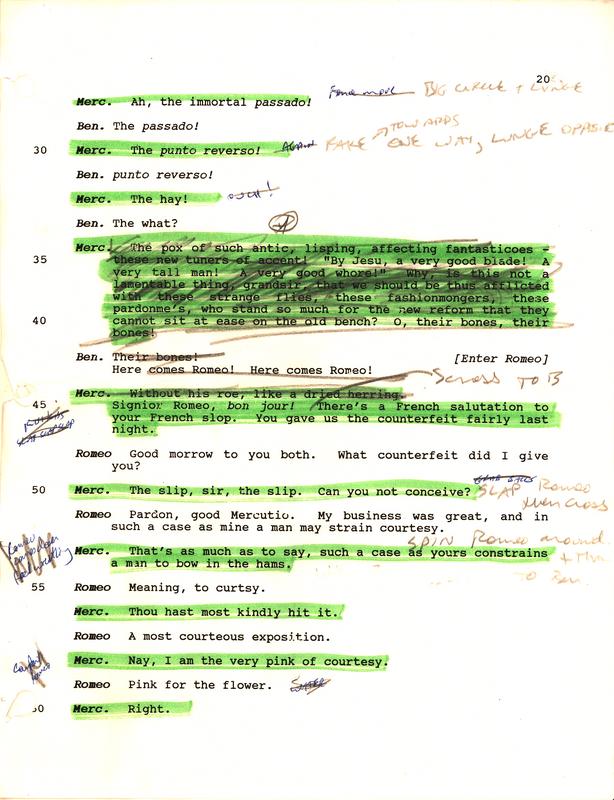 20
Fence move BIG CIRCLE + LUNGE
Merc. Ah, the immortal passado!
Ben. The passado!
TOWARDS
30 Merc. The punto reverso! AGAIN FAKE ONE WAY, LUNGE OPPOSITE
Ben. punto reverso!
Merc. The hay!
Ben. The what?
Merc. The pox of such antic, lisping, affecting fantasticoes -
35 these new tuners of accent! "By Jesu, a very good blade! A
very tall man! A very good whore!" Why, is this not a
lamentable thing, grandsir, that we should be thus afflicted
with these strange flies, these fashionmongers, these
pardonme's, who stand so much for the new reform that they
40 cannot sit at ease on the old bench? O, their bones, their
bones!
Ben. Their bones! [Enter Romeo]
Here comes Romeo! Here comes Romeo!
cross TO B
Merc. Without his roe, like a dried herring.
45 Signior Romeo, bon jour! There's a French salutation to
your French slop. You gave us the counterfeit fairly last
night.
Romeo Good morrow to you both. What counterfeit did I give
you?
50 Merc. The slip, sir, the slip. Can you not conceive? SLAP Romeo
then cross
Romeo Pardon, good Mercutio. My business was great, and in
such a case as mine a man may strain courtesy.
SPIN Romeo around
Merc. That's as much as to say, such a case as yours constrains
a man to bow in the hams.
TO Ben
55 Romeo Meaning, to curtsy.
Merc. Thou hast most kindly hit it.
Romeo A most courteous exposition.
Merc. Nay, I am the very pink of courtesy.
Romeo Pink for the flower.
60 Merc. Right.